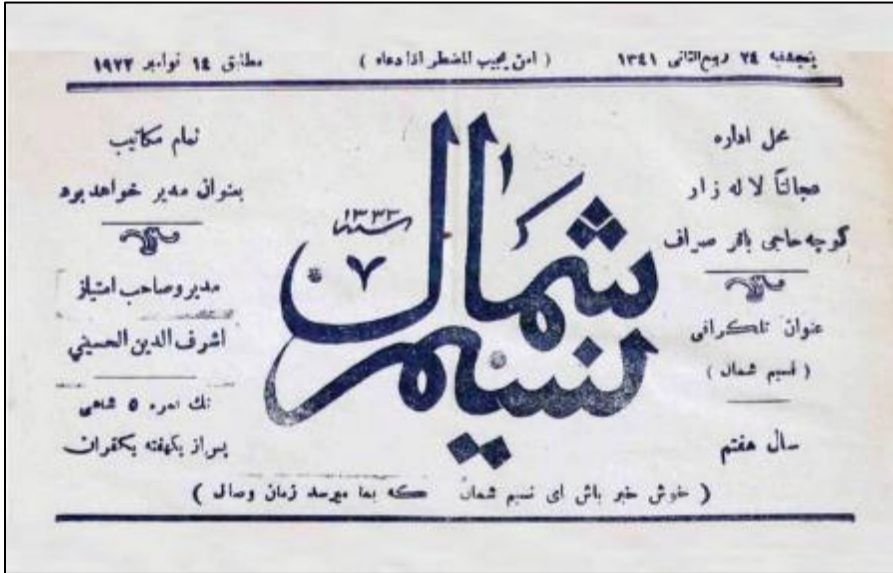 پنجشنبه ۲۴ ربیع‌الثانی ۱۳۴۱ ( امن یجیب المضطر اذا دعاه ) مطابق ۱٤ نوامبر ۱۹۲۲
محل اداره
عجالتاً لاله زار
کوچه حاجی باقر صراف
عنوان تلکرافی
( نسیم شمال )
سال هفتم
نسیم شمال
سنه ۱۳۳۳
۷
تمام مکاتیب
بعنوان مدیر خواهد بود
مدیر و صاحب امتیاز
اشرف الدین الحسینی
تك نمره ۵ شاهی
پس از یکهفته یکقران
( خوش خبر باش ای نسیم شمال که بما میرسد زمان وصال )